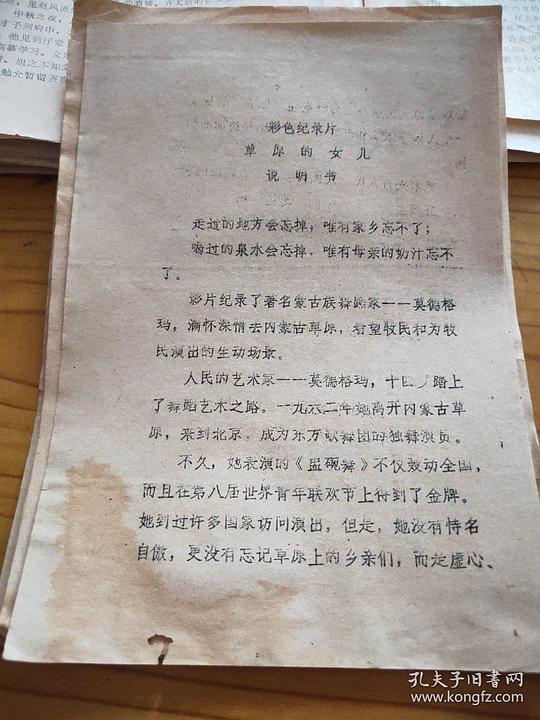 彩色纪录片
草原的女儿
说明书
走过的地方会忘掉，唯有家乡忘不了；
喝过的泉水会忘掉，唯有母亲的奶汁忘不
了。
影片纪录了著名蒙古族舞蹈家——莫德格
玛，满怀深情去内蒙古草原，看望牧民和为牧
民演出的生动场景。
人民的艺术家——莫德格玛，十四岁踏上
了舞蹈艺术之路。一九六二年她离开内蒙古草
原，来到北京，成为东方歌舞团的独舞演员。
不久，她表演的《盅碗舞》不仅轰动全国，
而且在第八届世界青年联欢节上得到了金牌。
她到过许多国家访问演出，但是，她没有恃名
自傲，更没有忘记草原上的乡亲们，而是虚心、
孔夫子旧书网
www.kongfz.com